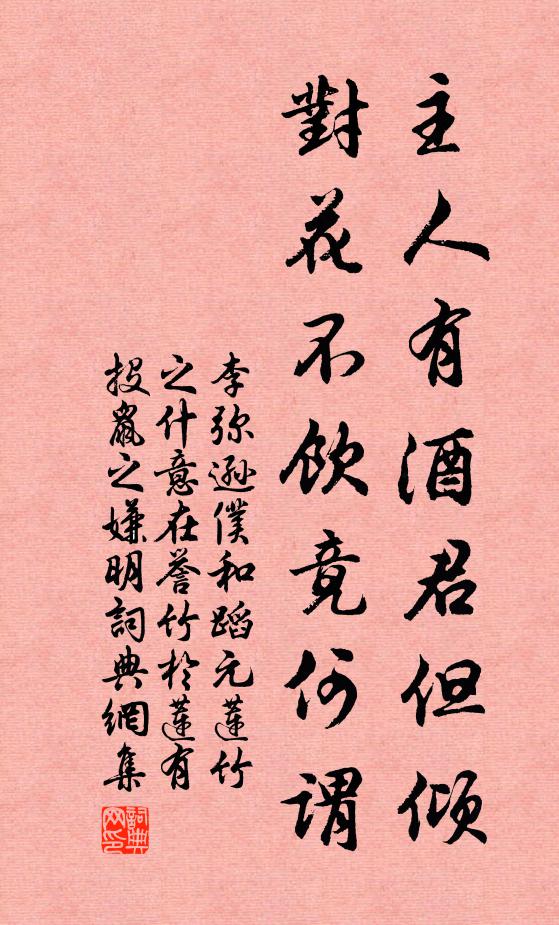 主人有酒君但傾
對花不飲竟何謂
李弥遜僕和蹈元蓮竹
之什意在譽竹於蓮有
投鼠之嫌明詞典網集
詞典
网印